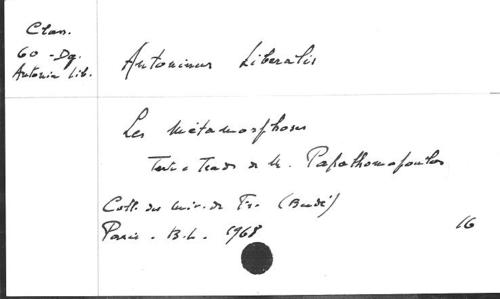 Clas.
60 - Dg.
Antonin Lib.
Antoninus Liberalis
Les Métamorphoses
Texte e Trad. de M. Papathomopoulos
Coll. des Univ. de Fr. (Budé)
Paris - B.L. 1968
16